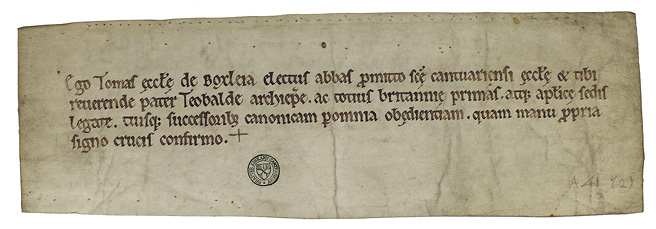 Ego Tomas ęccłę de Boxleia electus abbas ꝓmitto scę cantuariensi ęccłę & tibi
reuerende pater Teobalde archiep̄e. ac totius britannie primas. atq; aplice sedis
legate. tuisq; successorib; canonicam ꝑ omnia obędientiam. quam manu ꝓpria
signo crucis confirmo. +
A 41 (2)